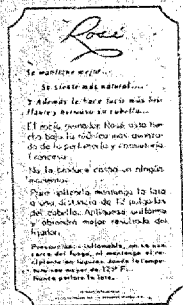 Rosé
Se mantiene mejor...
Se siente más natural....
Y Además le hace lucir más bri-
llante y hermoso su cabello...
El rocío peinador Rosé está he-
cho bajo la técnica más avanza-
da de la perfumería y cosmetología
Francesa.
No la produce caspa en ningún
momento.
Para aplicarla, mantenga la lata
a una distancia de 12 pulgadas
del cabello. Aplíquese uniforme
y obtendrá mejor resultado del
fijador.
Precaución: inflamable, no se use
cerca del fuego, ni mantenga el re-
cipiente en lugares donde la tempe-
ratura sea mayor de 120° F.
Nunca perfore la lata.